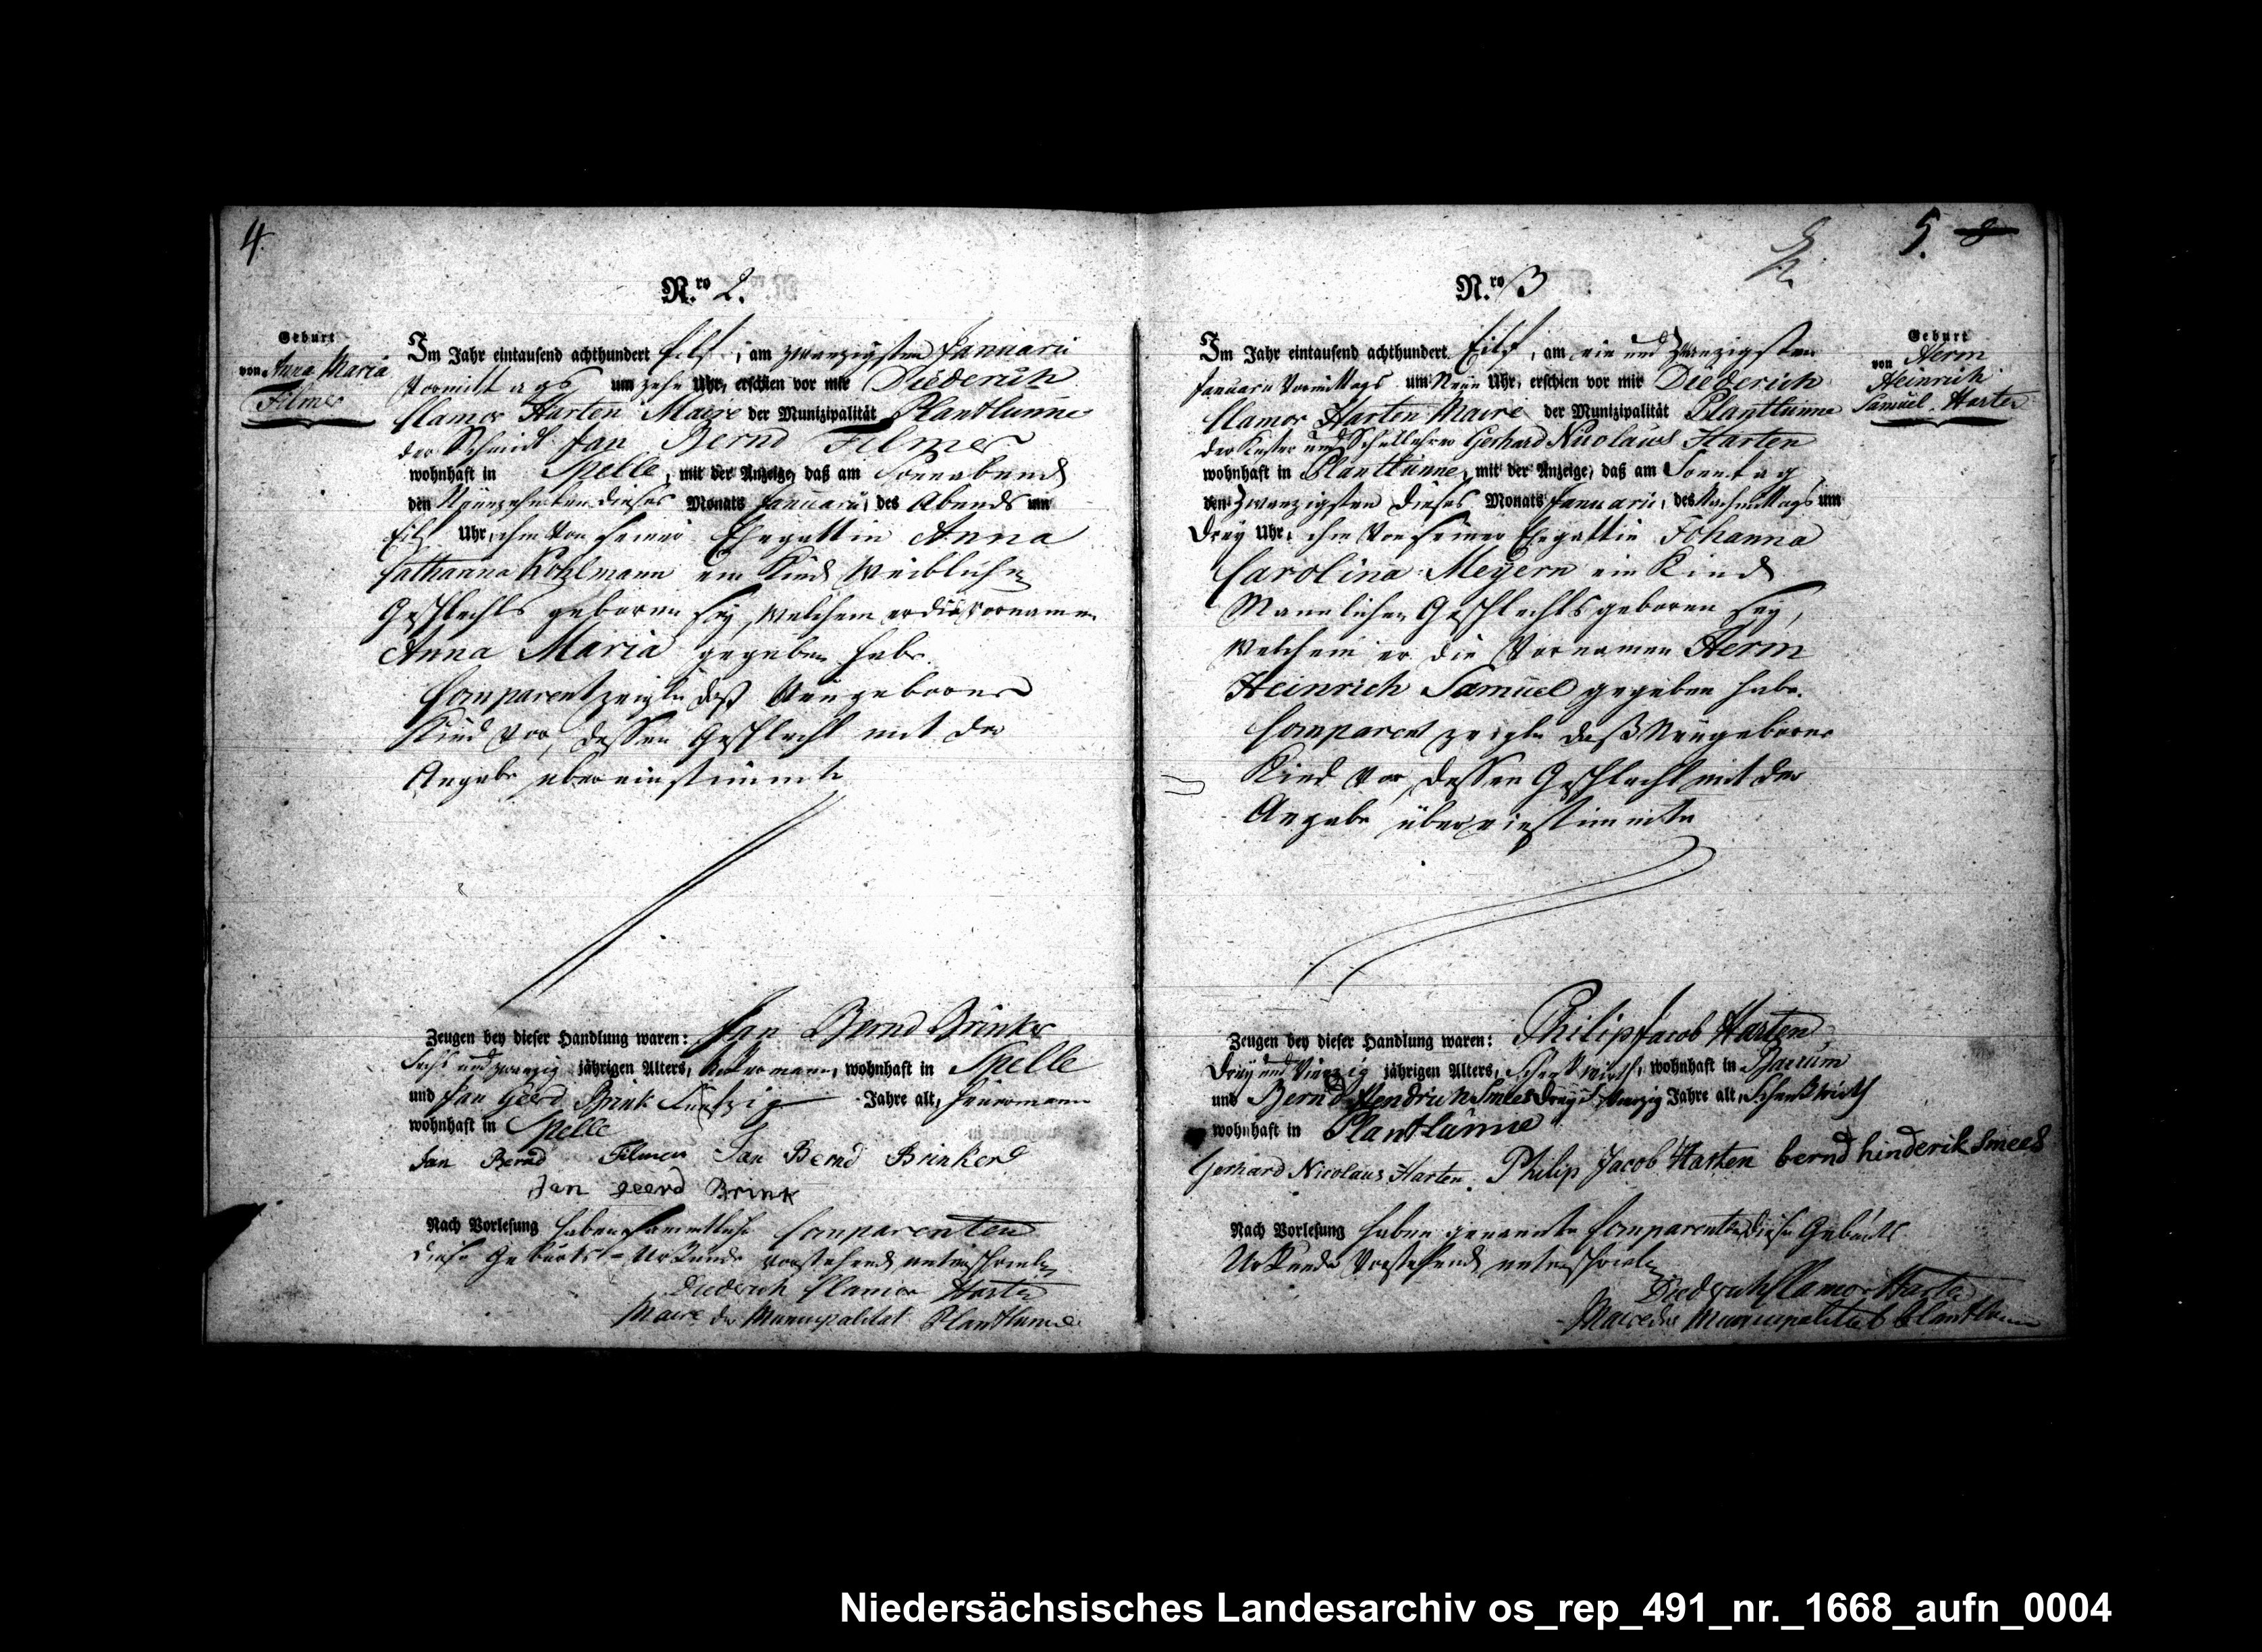 4.
Nro 2.
Geburt
von Anna Maria
Filmer
Im Jahr eintausend achthundert Eilf, am zwanzigsten Januarii
Vormittags um zehn Uhr, erschien vor mir Diederich
Clamor Harten Maire der Munizipalität Plantlünne
der Schmidt Jan Bernd Filmer
wohnhaft in Spelle, mit der Anzeige, daß am Sonnabend
den Neunzehnten dieses Monats Januarii, des Abends um
Eilf Uhr, ihm von seiner Ehegattin Anna
Catharina ein Kind Weiblichen
Geschlechts geboren sey, welchem er die Vornamen
Anna Maria gegeben habe.
Comparent zeigte daß Neugeborne
Kind vor, dessen Geschlecht mit der
Angabe übereinstimmte
Zeugen bey dieser Handlung waren: Jan Bernd Brinker
Sechs und zwanzig jährigen Alters, Ackermann, wohnhaft in Spelle
und Jan Geerd Brink Fünfzig Jahre alt, Heuermann
wohnhaft in Spelle
Jan Bernd Filmer Jan Bernd Brinker
Jan geerd Brink
Nach Vorlesung haben sammtliche Comparenten
diese Geburts-Urkunde vorstehend unterschrieben
Diederich Clamor Harten
Maire der Municipalitat Plantlunne
5. 8
Nro 3
Geburt
von Herm
Heinrich
Samuel Harten
Im Jahr eintausend achthundert Eilf, am ein und zwanzigsten
Januarii Vormittags um Neun Uhr, erschien vor mir Diederich
Clamor Harten Maire der Munizipalität Plantlünne
der Küster und Schullehrer Gerhard Nicolaus Harten
wohnhaft in Plantlünne, mit der Anzeige, daß am Sonntag
den Zwanzigsten dieses Monats Januarii, des Nachmittags um
Drey Uhr, ihm von seiner Ehegattin Johanna
Carolina Meyern ein Kind
Mannlichen Geschlechts geboren sey,
welchem er die Vornamen Herm
Heinrich Samuel gegeben habe.
Comparent zeigte daß Neugeborne
Kind vor, dessen Geschlecht mit der
Angabe übereinstimmte
Zeugen bey dieser Handlung waren: Philip Jacob Harten
Drey und Vierzig jährigen Alters, Schenkwirth, wohnhaft in
und Bernd Hendrich Smees Drey und Vierzig Jahre alt, Schenkwirth
wohnhaft in Plantlünne
Gerhard Nicolaus Harten. Philip Jacob Harten bernd hinderik Smees
Nach Vorlesung haben genannte Comparenten diese Geburts
Urkunde Vorstehend unterschrieben
Diederich Clamor Harten
Maire der Municipalitat Plantlunne
Niedersächsisches Landesarchiv os_rep_491_nr._1668_aufn_0004